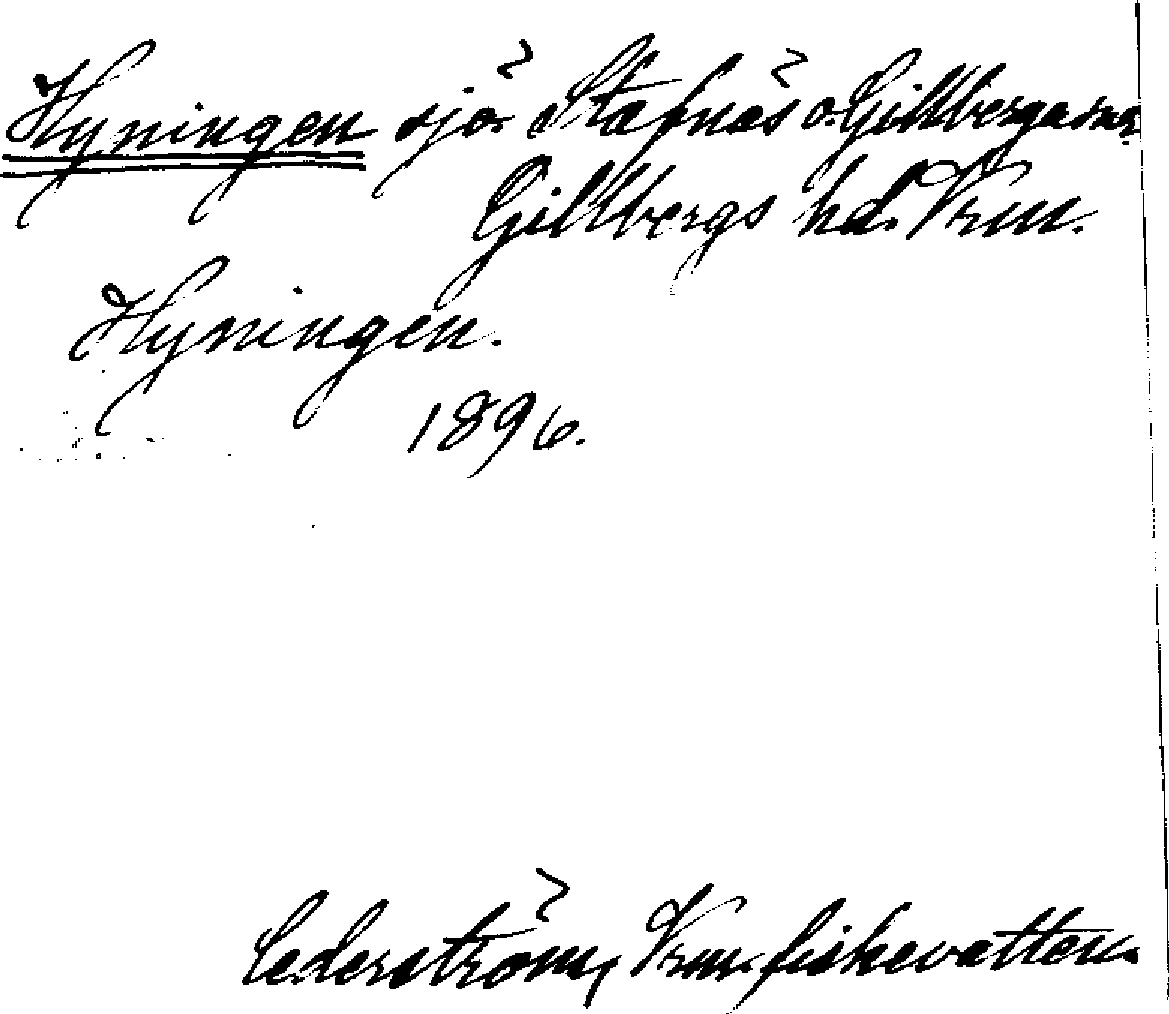 Hyningen sjö. Stafnäs o. Gillbergasnar
Gillbergs hd. Vrm.
Hyningen.
1896.
Cederström, Vrm. fiskevatten.